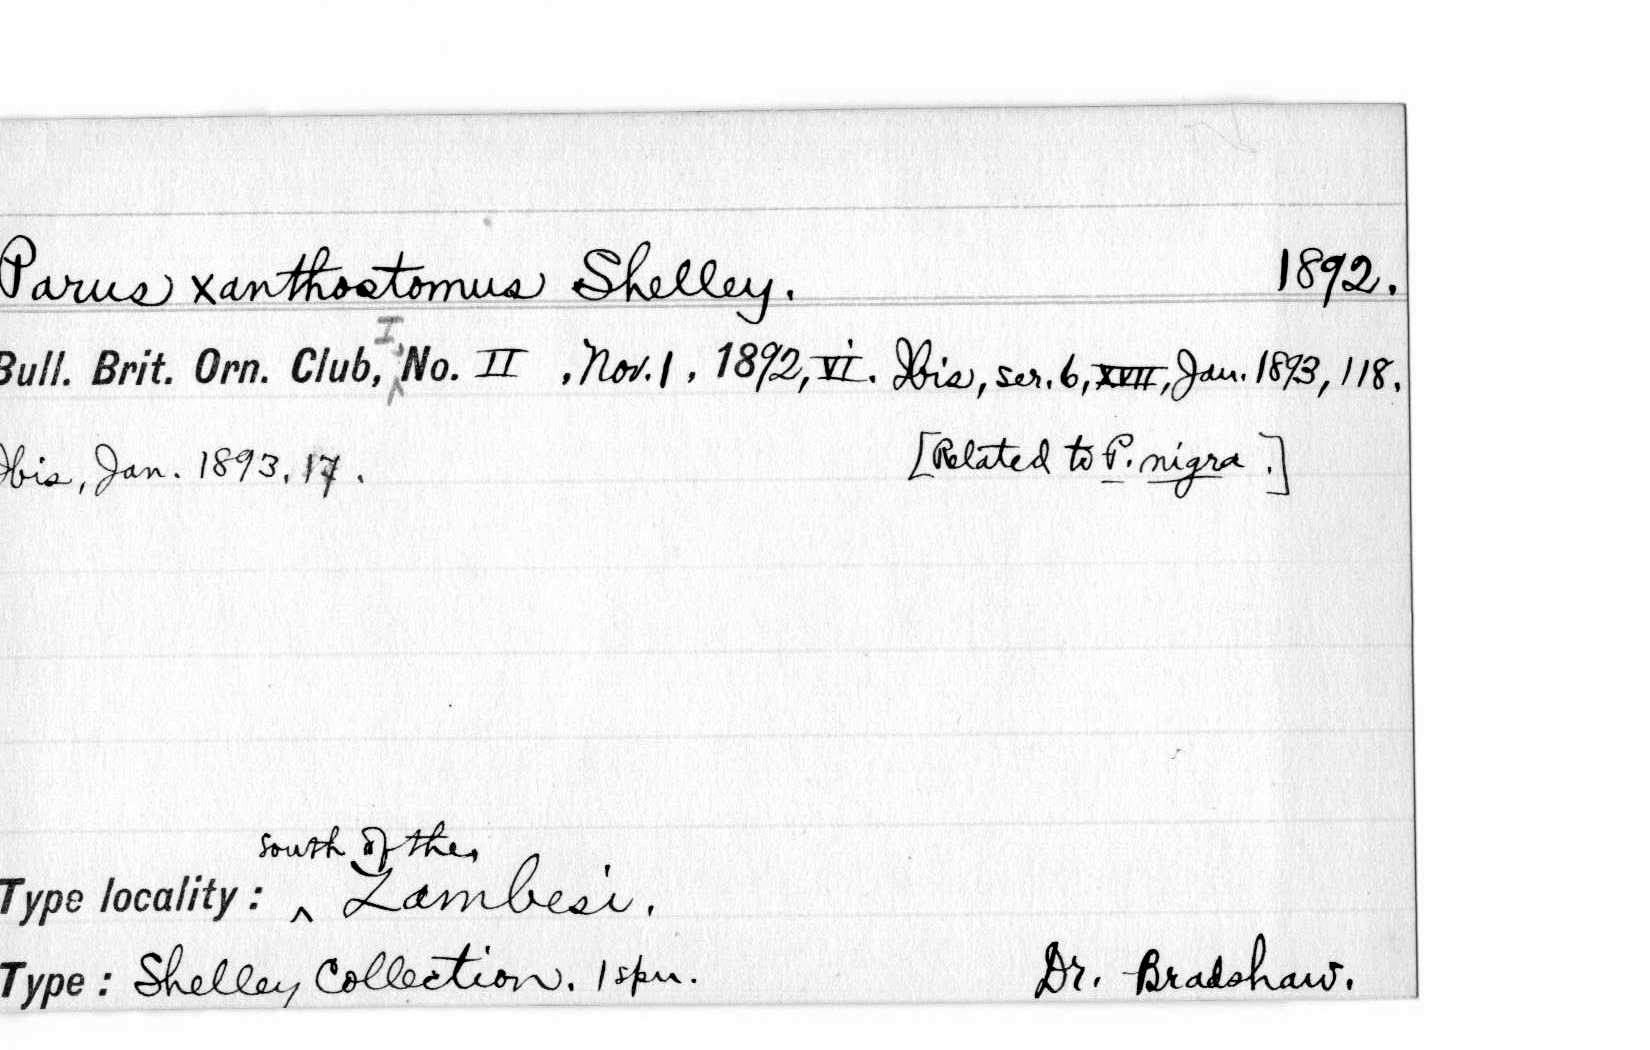 Parus xanthostomus Shelley. 1892.
Bull. Brit. Orn. Club, I, No. II, Nov. 1, 1892, VI. Ibis, ser. 6, XVII, Jan. 1893, 118.
Ibis, Jan. 1893. 17. [Related to P. nigra.]
Type locality: south of the Zambesi.
Type: Shelley Collection. 1 spm. Dr. Bradshaw.